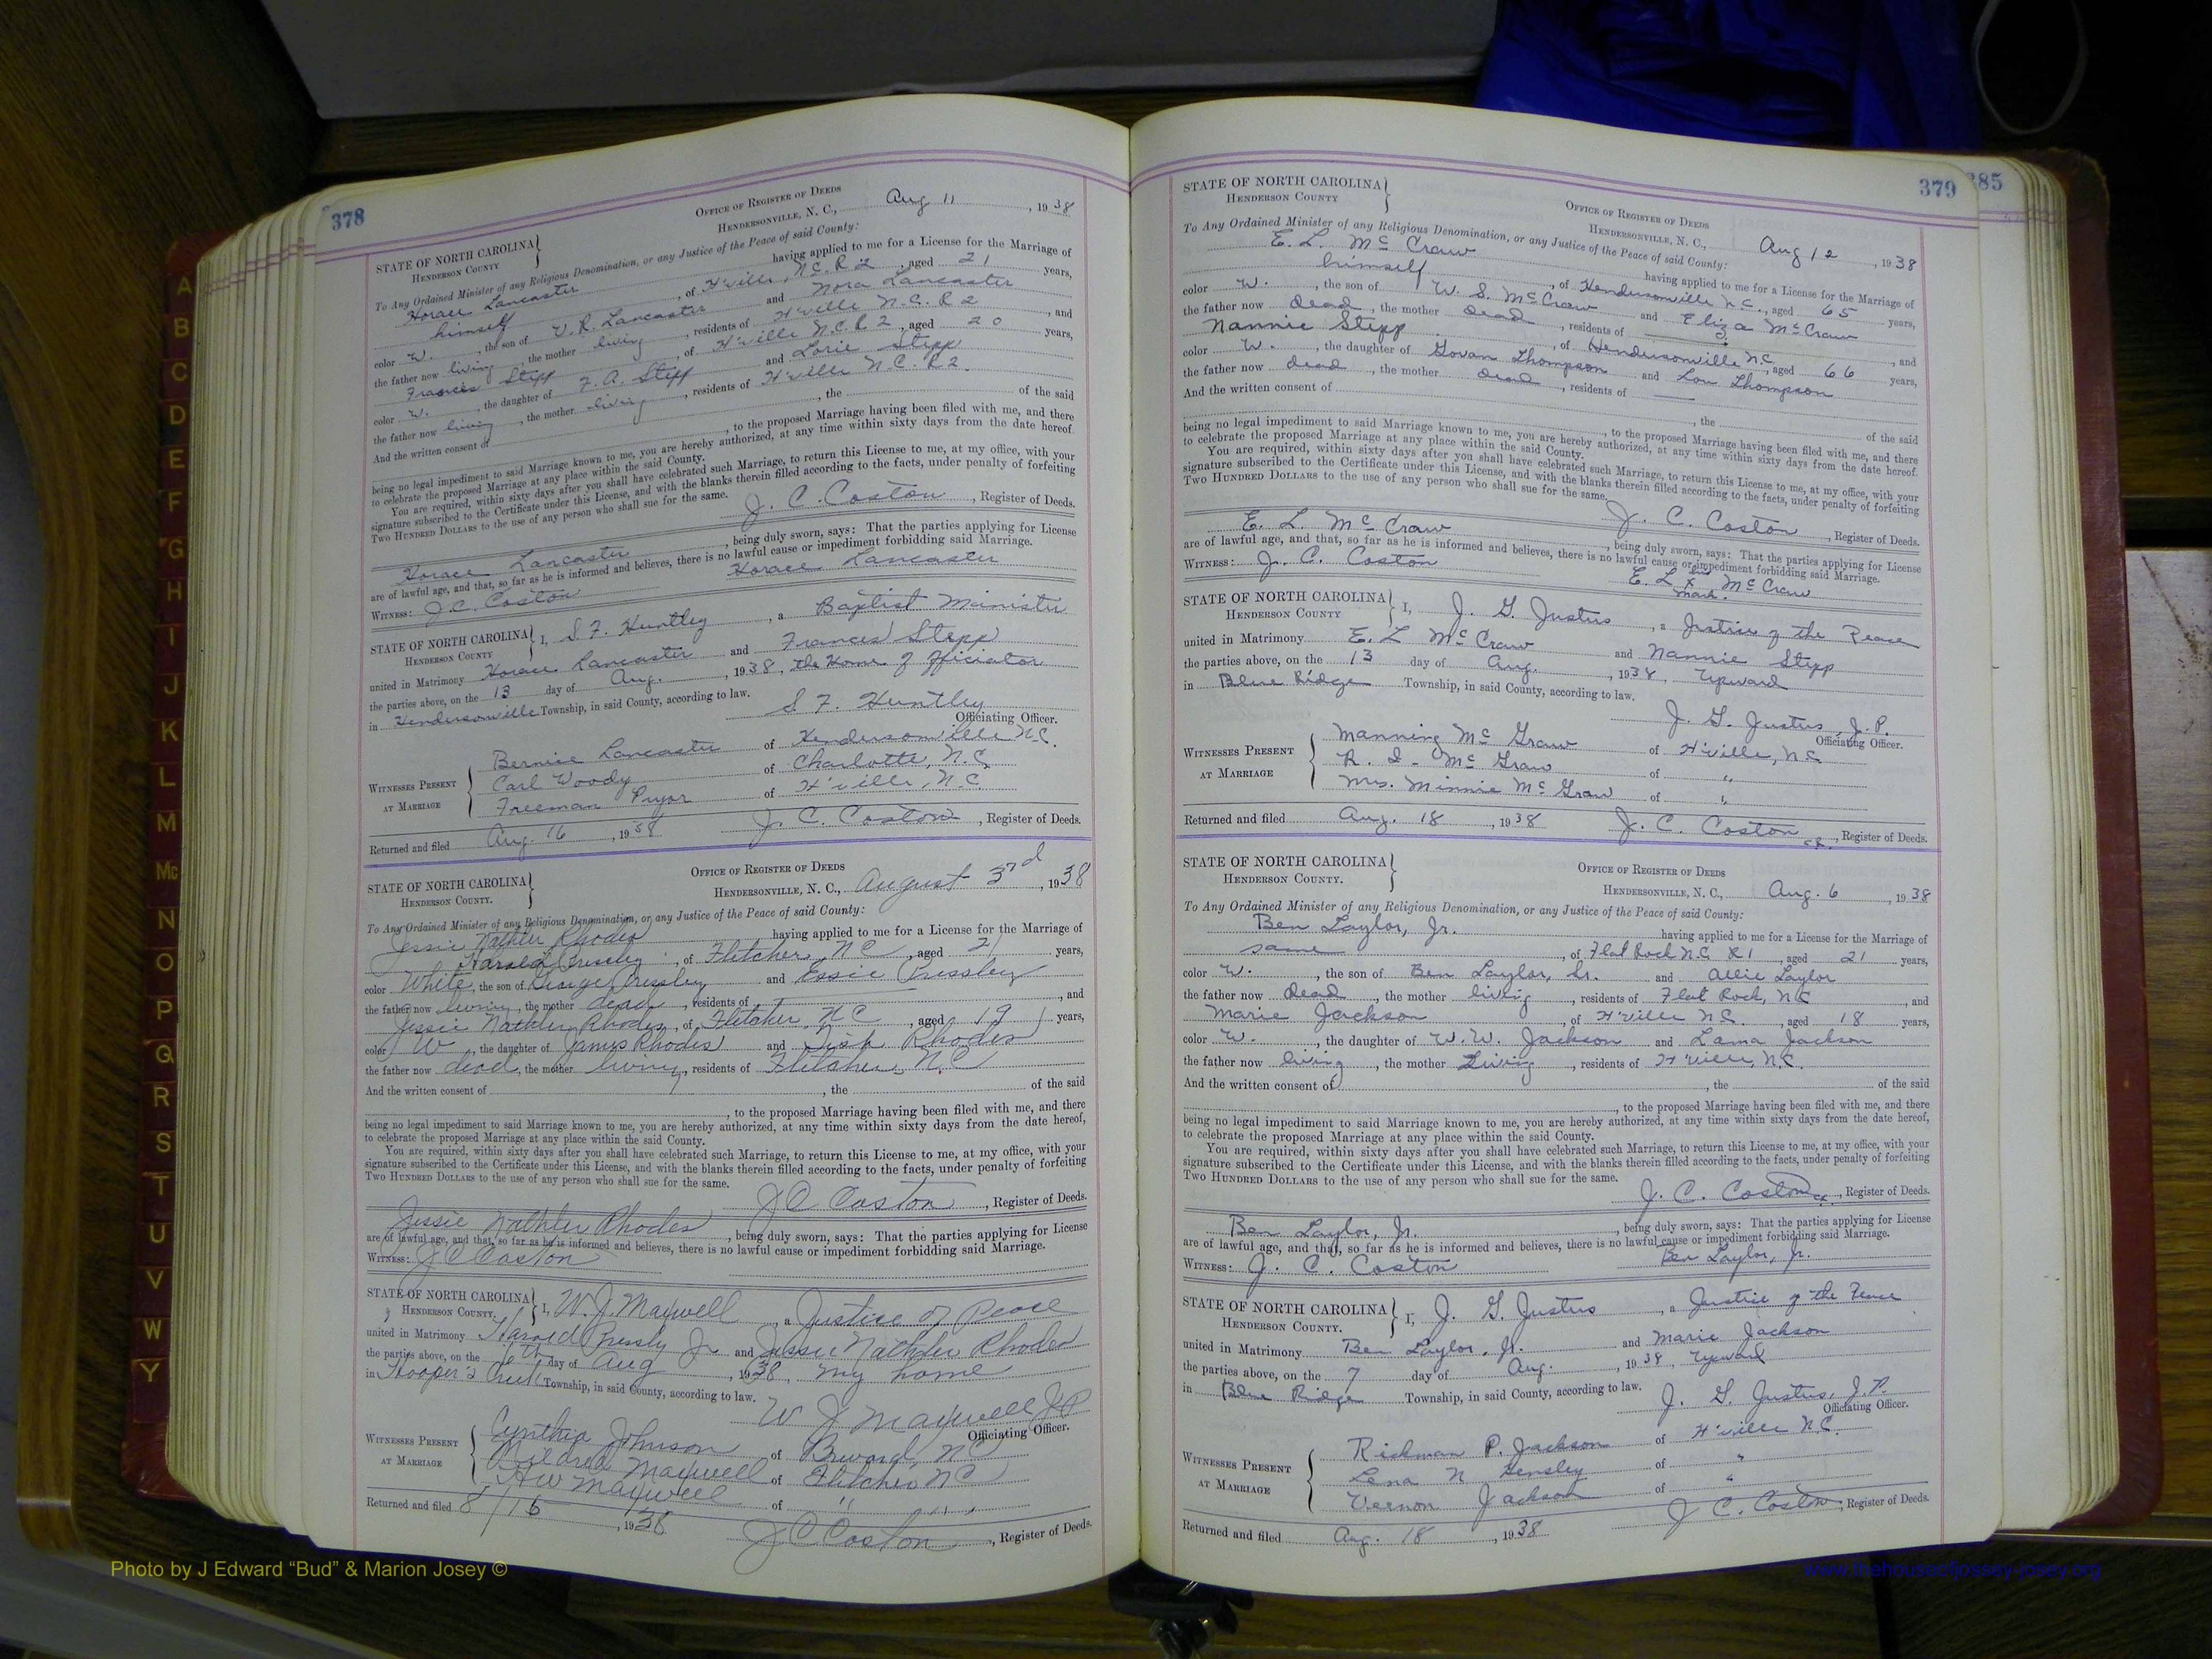 378
STATE OF NORTH CAROLINA
HENDERSON COUNTY
OFFICE OF REGISTER OF DEEDS
HENDERSONVILLE, N. C., Aug 11, 1938
To Any Ordained Minister of any Religious Denomination, or any Justice of the Peace of said County:
Horace Lancaster having applied to me for a License for the Marriage of
himself, of H'ville, N.C. R 2, aged 21 years,
color W., the son of V. R. Lancaster and Nora Lancaster
the father now living, the mother living, residents of H'ville N.C. R 2, and
Frances Stepp, of H'ville N.C. R 2, aged 20 years,
color W., the daughter of F. A. Stepp and Lorie Stepp
the father now living, the mother living, residents of H'ville N.C. R 2.
And the written consent of , the of the said
, to the proposed Marriage having been filed with me, and there
being no legal impediment to said Marriage known to me, you are hereby authorized, at any time within sixty days from the date hereof,
to celebrate the proposed Marriage at any place within the said County.
You are required, within sixty days after you shall have celebrated such Marriage, to return this License to me, at my office, with your
signature subscribed to the Certificate under this License, and with the blanks therein filled according to the facts, under penalty of forfeiting
TWO HUNDRED DOLLARS to the use of any person who shall sue for the same.
J. C. Coston, Register of Deeds.
Horace Lancaster, being duly sworn, says: That the parties applying for License
are of lawful age, and that, so far as he is informed and believes, there is no lawful cause or impediment forbidding said Marriage.
WITNESS: J. C. Coston Horace Lancaster
STATE OF NORTH CAROLINA
HENDERSON COUNTY
I, S. F. Huntley, a Baptist Minister
united in Matrimony Horace Lancaster and Frances Stepp
the parties above, on the 13 day of Aug., 1938, the Home of Officiator
in Hendersonville Township, in said County, according to law.
S. F. Huntley
Officiating Officer.
WITNESSES PRESENT
AT MARRIAGE
Bernice Lancaster of Hendersonville N.C.
Carl Woody of Charlotte, N.C.
Freeman Pryor of H'ville, N.C.
Returned and filed Aug. 16, 1938 J. C. Coston, Register of Deeds.
STATE OF NORTH CAROLINA
HENDERSON COUNTY.
OFFICE OF REGISTER OF DEEDS
HENDERSONVILLE, N. C., August 3rd, 1938
To Any Ordained Minister of any Religious Denomination, or any Justice of the Peace of said County:
Jessie Rhodes having applied to me for a License for the Marriage of
Harold Pressley, of Fletcher, NC, aged 21 years,
color White, the son of George Pressley and Essie Pressley
the father now living, the mother dead, residents of , and
Jessie Rhodes, of Fletcher, NC, aged 19 years,
color W, the daughter of James Rhodes and Rhodes
the father now dead, the mother living, residents of Fletcher, N.C
And the written consent of , the of the said
, to the proposed Marriage having been filed with me, and there
being no legal impediment to said Marriage known to me, you are hereby authorized, at any time within sixty days from the date hereof,
to celebrate the proposed Marriage at any place within the said County.
You are required, within sixty days after you shall have celebrated such Marriage, to return this License to me, at my office, with your
signature subscribed to the Certificate under this License, and with the blanks therein filled according to the facts, under penalty of forfeiting
TWO HUNDRED DOLLARS to the use of any person who shall sue for the same.
J C Coston, Register of Deeds.
Jessie Rhodes, being duly sworn, says: That the parties applying for License
are of lawful age, and that, so far as he is informed and believes, there is no lawful cause or impediment forbidding said Marriage.
WITNESS: J C Coston
STATE OF NORTH CAROLINA
HENDERSON COUNTY.
I, W. J. Maxwell, a Justice of Peace
united in Matrimony Harold Pressly Jr and Jessie Rhodes
the parties above, on the day of Aug, 1938, my home
in Hooper's Creek Township, in said County, according to law.
W J Maxwell JP
Officiating Officer.
WITNESSES PRESENT
AT MARRIAGE
Cynthia Johnson of Brevard, NC
Mildred Maxwell of Fletcher NC
H W Maxwell of " "
Returned and filed 8/15, 1938 J C Coston, Register of Deeds.
379
385
STATE OF NORTH CAROLINA
HENDERSON COUNTY
OFFICE OF REGISTER OF DEEDS
HENDERSONVILLE, N. C., Aug 12, 1938
To Any Ordained Minister of any Religious Denomination, or any Justice of the Peace of said County:
E. L. McCraw having applied to me for a License for the Marriage of
himself, of Hendersonville N.C., aged 65 years,
color W., the son of W. S. McCraw and Eliza McCraw
the father now dead, the mother dead, residents of , and
Nannie Stepp, of Hendersonville N.C., aged 66 years,
color W., the daughter of Govan Thompson and Lou Thompson
the father now dead, the mother dead, residents of
And the written consent of , the of the said
, to the proposed Marriage having been filed with me, and there
being no legal impediment to said Marriage known to me, you are hereby authorized, at any time within sixty days from the date hereof.
to celebrate the proposed Marriage at any place within the said County.
You are required, within sixty days after you shall have celebrated such Marriage, to return this License to me, at my office, with your
signature subscribed to the Certificate under this License, and with the blanks therein filled according to the facts, under penalty of forfeiting
TWO HUNDRED DOLLARS to the use of any person who shall sue for the same.
J. C. Coston, Register of Deeds.
E. L. McCraw, being duly sworn, says: That the parties applying for License
are of lawful age, and that, so far as he is informed and believes, there is no lawful cause or impediment forbidding said Marriage.
WITNESS: J. C. Coston E. L. x McCraw
mark.
STATE OF NORTH CAROLINA
HENDERSON COUNTY
I, J. G. Justus, a Justice of the Peace
united in Matrimony E. L. McCraw and Nannie Stepp
the parties above, on the 13 day of Aug., 1938, Upward
in Blue Ridge Township, in said County, according to law.
J. G. Justus, J.P.
Officiating Officer.
WITNESSES PRESENT
AT MARRIAGE
Manning McGraw of H'ville, N.C.
R. I. McGraw of "
Mrs. Minnie McGraw of "
Returned and filed Aug. 18, 1938 J. C. Coston, Register of Deeds.
STATE OF NORTH CAROLINA
HENDERSON COUNTY.
OFFICE OF REGISTER OF DEEDS
HENDERSONVILLE, N. C., Aug. 6, 1938
To Any Ordained Minister of any Religious Denomination, or any Justice of the Peace of said County:
Ben Laylor, Jr. having applied to me for a License for the Marriage of
same, of Flat Rock N.C. R1, aged 21 years,
color W., the son of Ben Laylor, Sr. and Allie Laylor
the father now dead, the mother living, residents of Flat Rock, N.C, and
Marie Jackson, of H'ville N.C., aged 18 years,
color W., the daughter of W. W. Jackson and Lama Jackson
the father now living, the mother Living, residents of H'ville, N.C.
And the written consent of , the of the said
, to the proposed Marriage having been filed with me, and there
being no legal impediment to said Marriage known to me, you are hereby authorized, at any time within sixty days from the date hereof,
to celebrate the proposed Marriage at any place within the said County.
You are required, within sixty days after you shall have celebrated such Marriage, to return this License to me, at my office, with your
signature subscribed to the Certificate under this License, and with the blanks therein filled according to the facts, under penalty of forfeiting
TWO HUNDRED DOLLARS to the use of any person who shall sue for the same.
J. C. Coston, Register of Deeds.
Ben Laylor, Jr., being duly sworn, says: That the parties applying for License
are of lawful age, and that, so far as he is informed and believes, there is no lawful cause or impediment forbidding said Marriage.
WITNESS: J. C. Coston Ben Laylor, Jr.
STATE OF NORTH CAROLINA
HENDERSON COUNTY.
I, J. G. Justus, a Justice of the Peace
united in Matrimony Ben Laylor, Jr. and Marie Jackson
the parties above, on the 7 day of Aug., 1938, Upward
in Blue Ridge Township, in said County, according to law.
J. G. Justus, J.P.
Officiating Officer.
WITNESSES PRESENT
AT MARRIAGE
Richman P. Jackson of H'ville N.C.
Lena N Hensley of "
Vernon Jackson of "
Returned and filed Aug. 18, 1938 J C. Coston, Register of Deeds.
A
B
C
D
E
F
G
H
I
J
K
L
M
Mc
N
O
P
Q
R
S
T
U
V
W
Y
Photo by J Edward “Bud” & Marion Josey ©
www.thehouseofjossey-josey.org